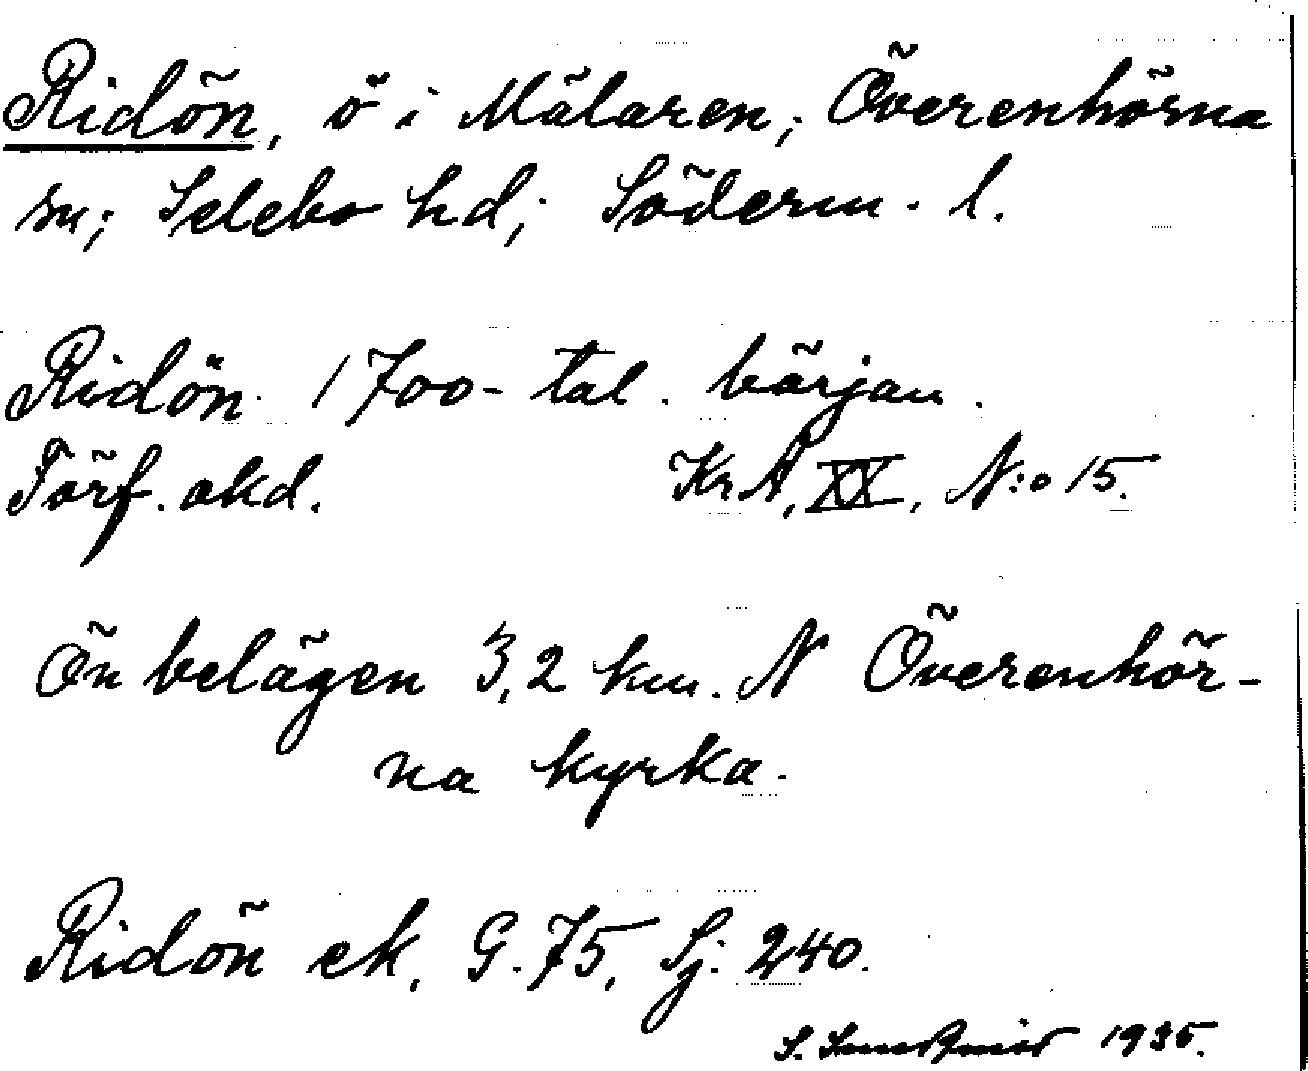 Ridön, ö i Mälaren; Överenhörna
sn; Selebo hd; Söderm. l.
Ridön 1700-tal. början.
Förf. okd. KrA, XX, N:o 15.
Ön belägen 3,2 km. N Överenhör-
na kyrka.
Ridön ek, G. 75, Sj: 240.
S. 1935.